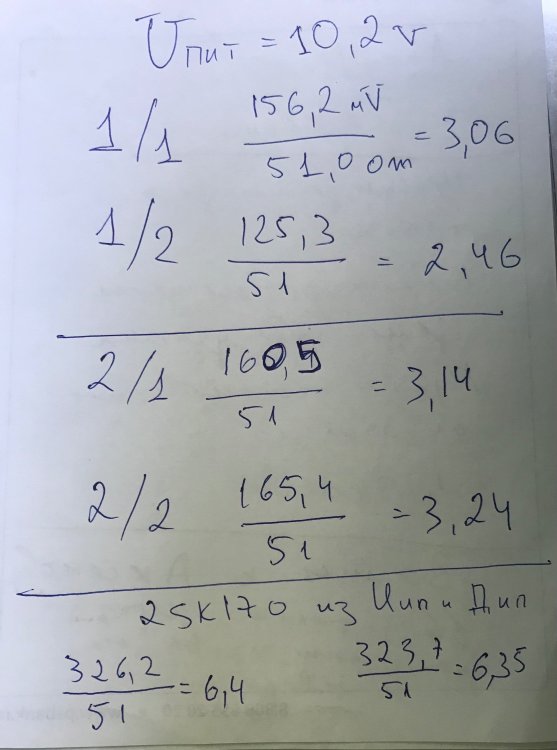 Uпит = 10,2 v
1/1 156,2 mV / 51,0 Om = 3,06
1/2 125,3 / 51 = 2,46
2/1 160,5 / 51 = 3,14
2/2 165,4 / 51 = 3,24
2SK170 из Чип и Дип
326,2 / 51 = 6,4 323,7 / 51 = 6,35